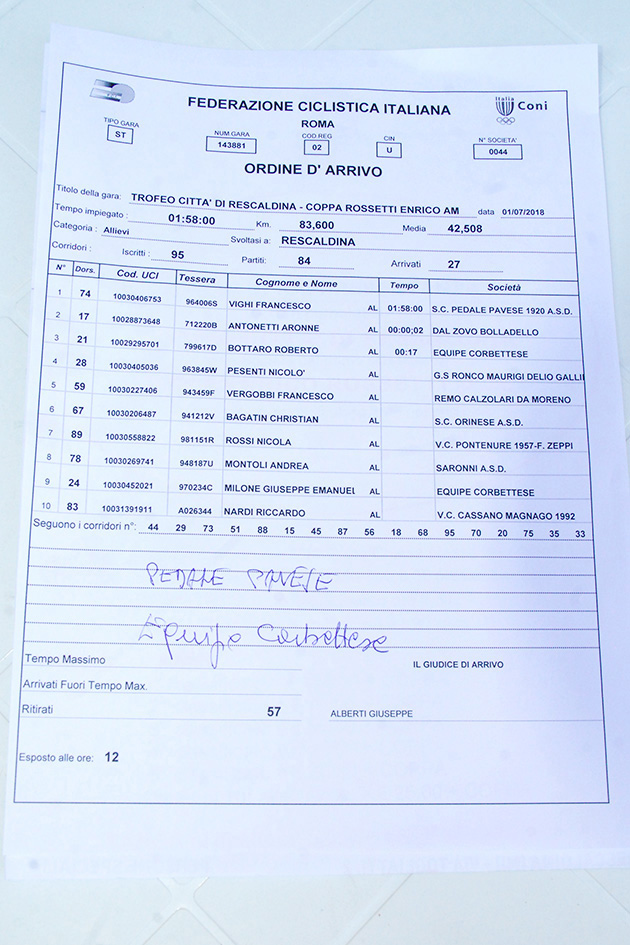 FEDERAZIONE CICLISTICA ITALIANA
Italia Coni
ROMA
TIPO GARA NUM.GARA COD REG CIN N° SOCIETA'
ST 143881 02 U 0044
ORDINE D' ARRIVO
Titolo della gara: TROFEO CITTA' DI RESCALDINA - COPPA ROSSETTI ENRICO AM data 01/07/2018
Tempo impiegato : 01:58:00 Km. 83,600 Media 42,508
Categoria : Allievi Svoltasi a: RESCALDINA
Corridori : Iscritti : 95 Partiti: 84 Arrivati 27
N° Dors. Cod. UCI Tessera Cognome e Nome Tempo Società
1 74 10030406753 964006S VIGHI FRANCESCO AL 01:58:00 S.C. PEDALE PAVESE 1920 A.S.D.
2 17 10028873648 712220B ANTONETTI ARONNE AL 00:00;02 DAL ZOVO BOLLADELLO
3 21 10029295701 799617D BOTTARO ROBERTO AL 00:17 EQUIPE CORBETTESE
4 28 10030405036 963845W PESENTI NICOLO' AL G.S RONCO MAURIGI DELIO GALLI
5 59 10030227406 943459F VERGOBBI FRANCESCO AL REMO CALZOLARI DA MORENO
6 67 10030206487 941212V BAGATIN CHRISTIAN AL S.C. ORINESE A.S.D.
7 89 10030558822 981151R ROSSI NICOLA AL V.C. PONTENURE 1957-F. ZEPPI
8 78 10030269741 948187U MONTOLI ANDREA AL SARONNI A.S.D.
9 24 10030452021 970234C MILONE GIUSEPPE EMANUEL AL EQUIPE CORBETTESE
10 83 10031391911 A026344 NARDI RICCARDO AL V.C. CASSANO MAGNAGO 1992
Seguono i corridori n°: 44 29 73 51 88 15 45 87 56 18 68 95 70 20 75 35 33
PEDALE PAVESE
Equipe Corbettese
Tempo Massimo IL GIUDICE DI ARRIVO
Arrivati Fuori Tempo Max.
Ritirati 57 ALBERTI GIUSEPPE
Esposto alle ore: 12